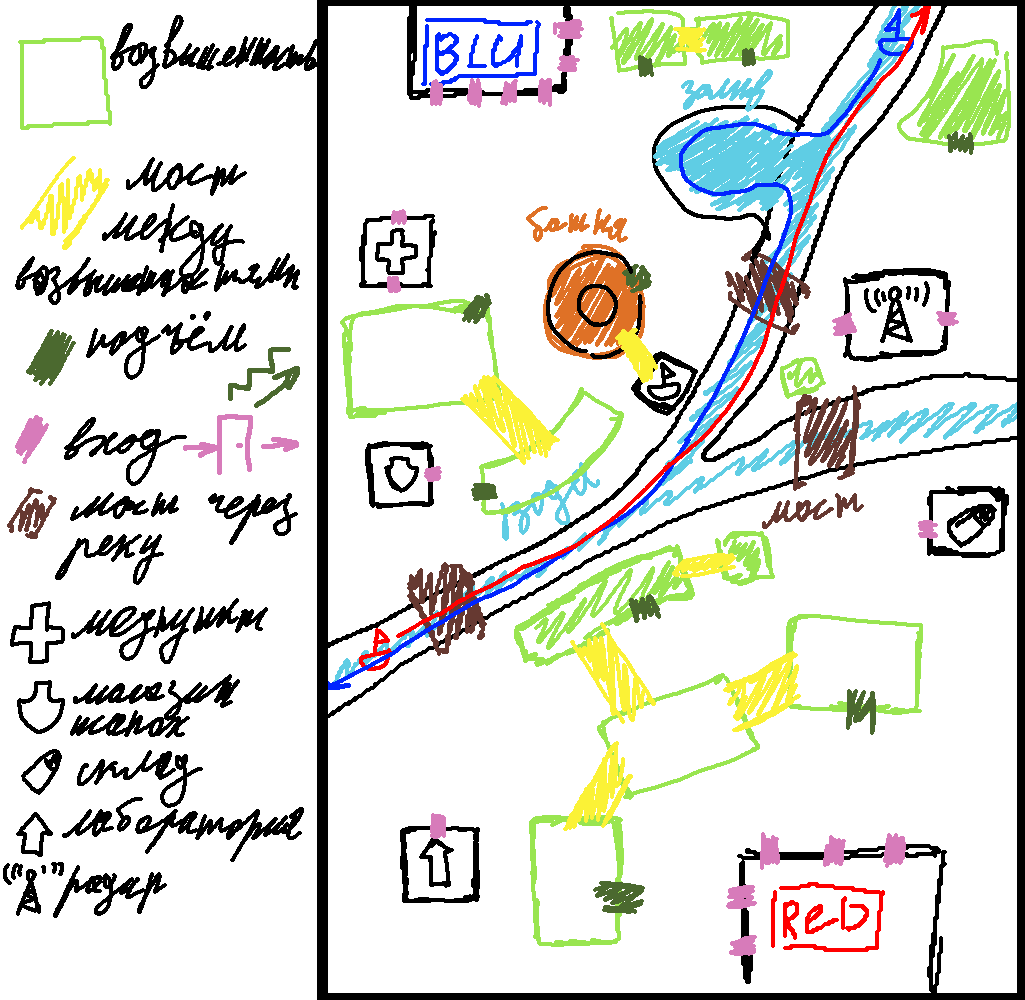 возвышенность
мост
между
возвышенностями
подъём
вход
мост через
реку
медпункт
магазин
шапок
склад
лаборатория
радар
BLU
залив
башня
мост
RED